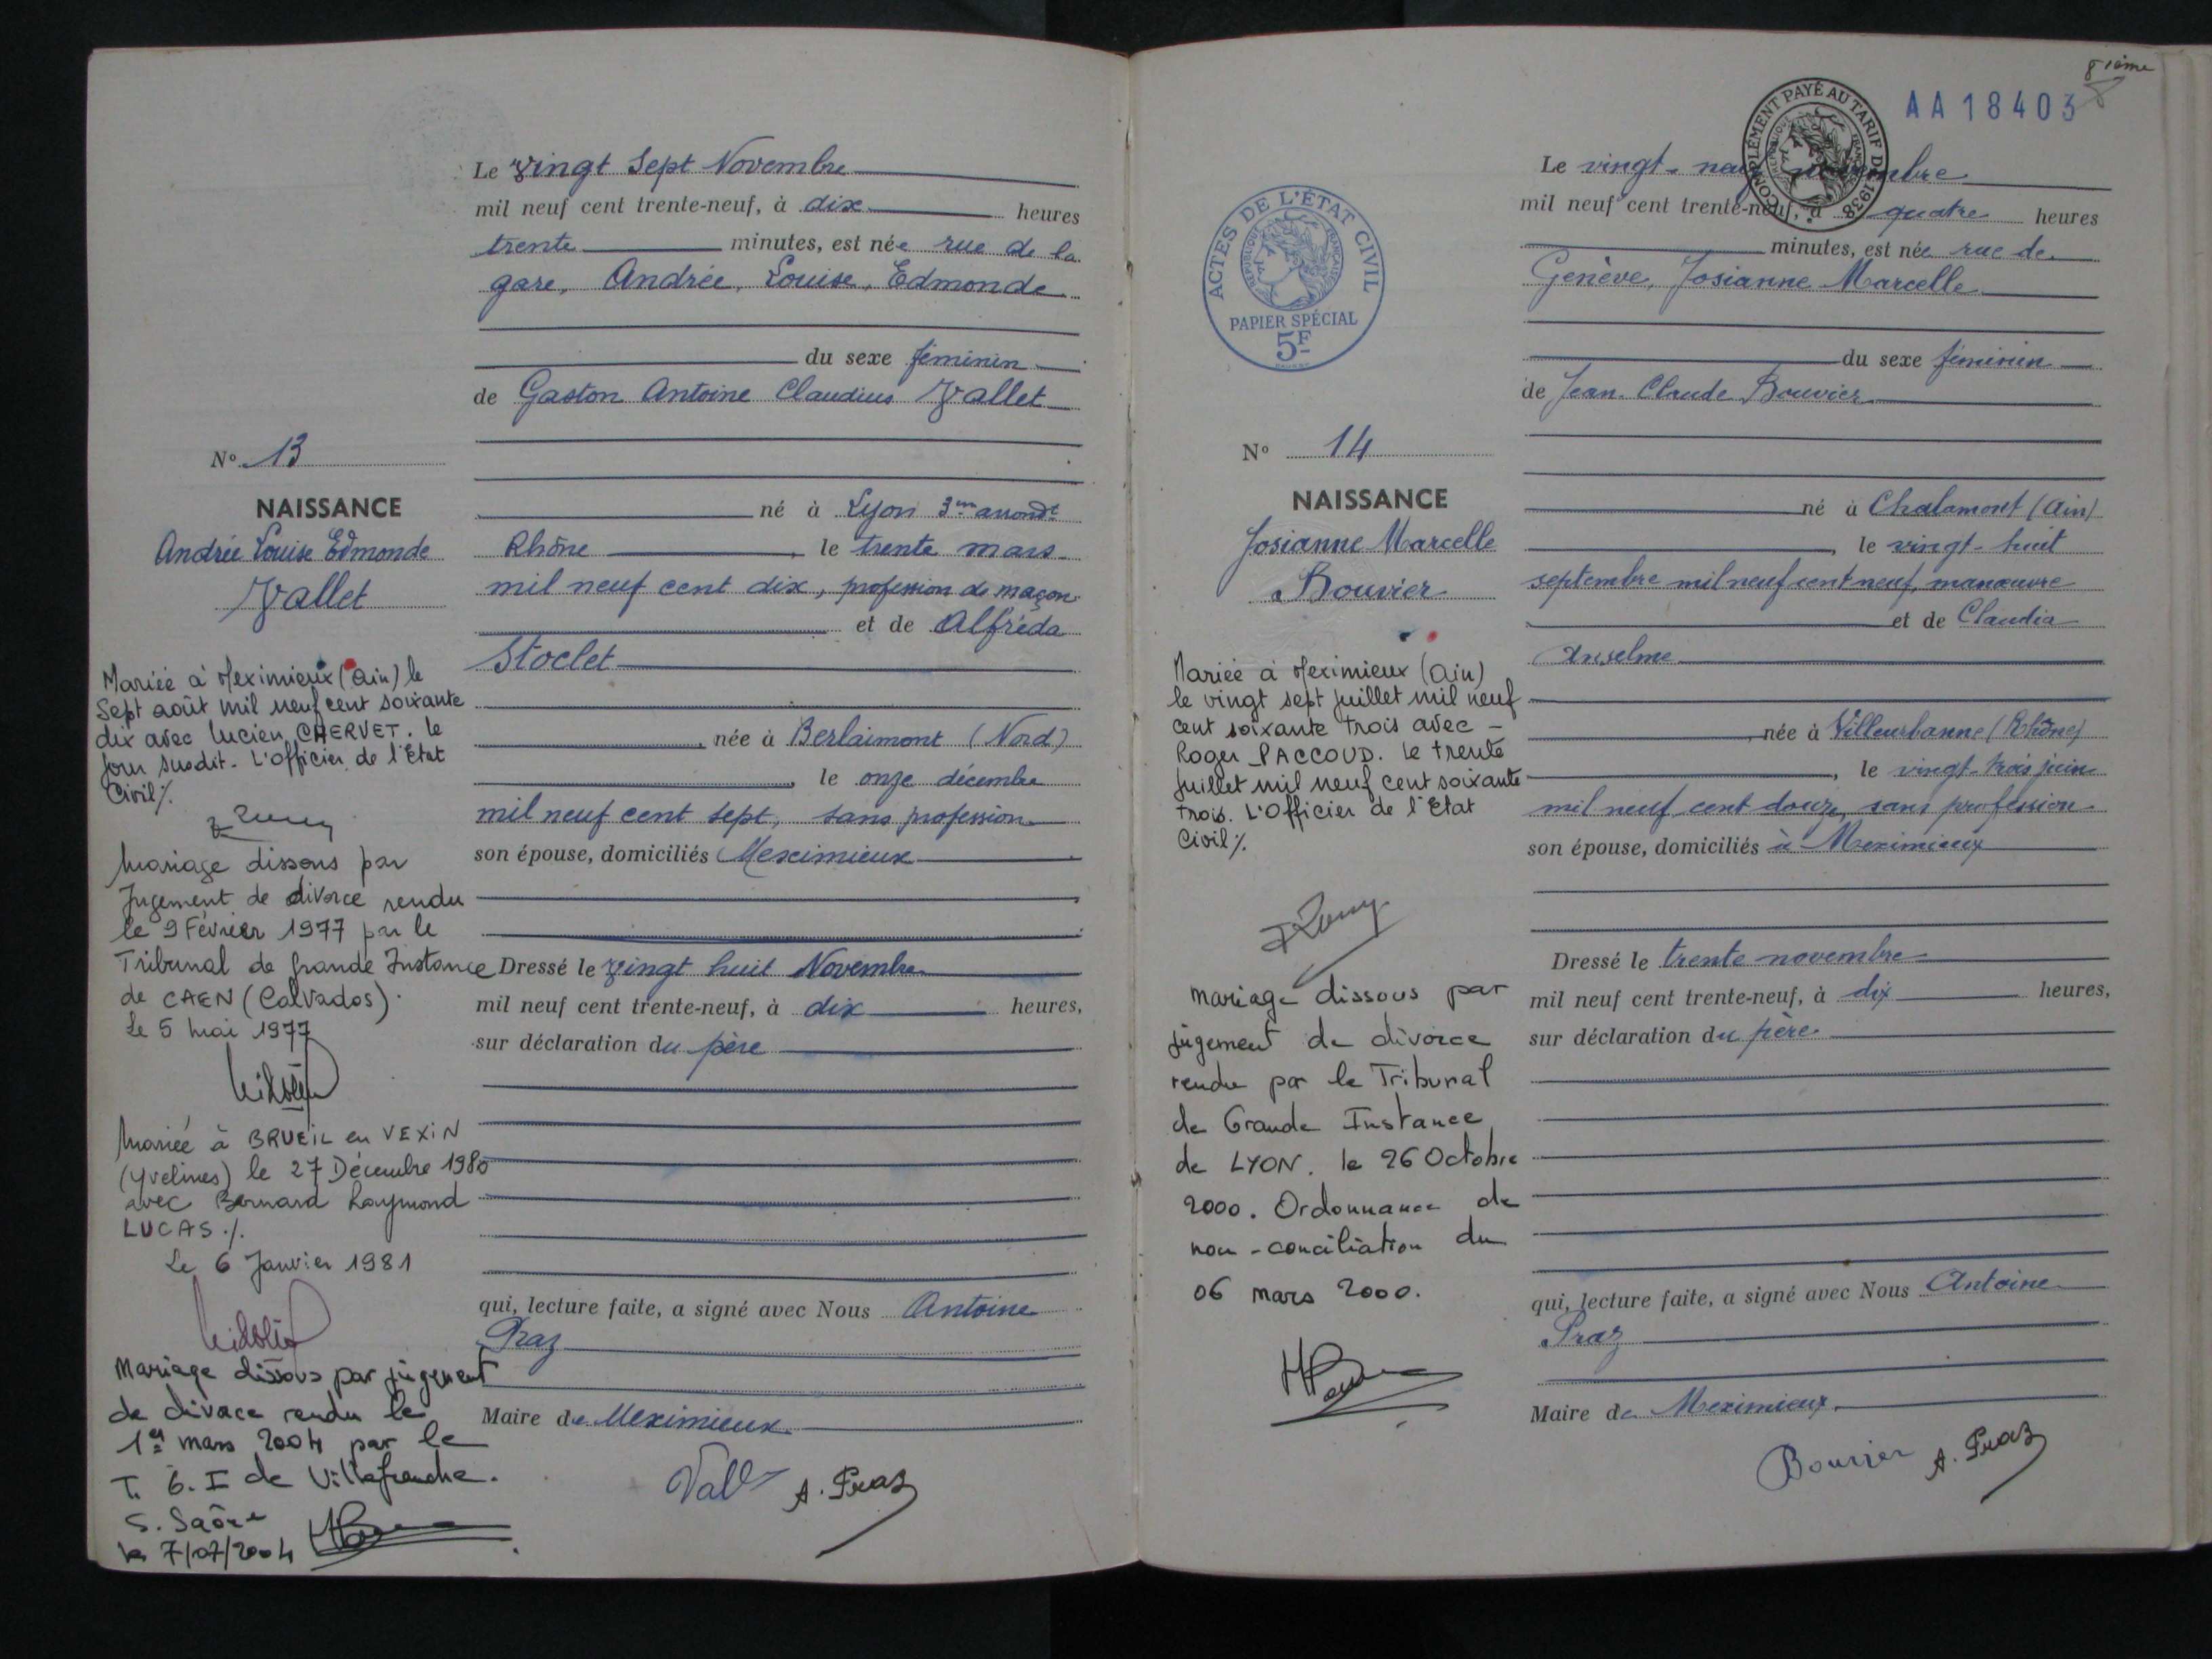 Le vingt Sept Novembre
mil neuf cent trente-neuf, à dix heures
trente minutes, est née rue de la
gare, Andrée, Louise, Edmonde
du sexe féminin
de Gaston Antoine Claudius Vallet
né à Lyon 3me arrondt
Rhône, le trente mars
mil neuf cent dix, profession de maçon
et de Alfréda
Stoclet
née à Berlaimont (Nord)
, le onze décembre
mil neuf cent sept, sans profession
son épouse, domiciliés Meximieux
Dressé le vingt huit Novembre
mil neuf cent trente-neuf, à dix heures,
sur déclaration du père
qui, lecture faite, a signé avec Nous Antoine
Praz
Maire de Meximieux
A. Praz
No 13
NAISSANCE
Andrée Louise Edmonde
Vallet
Mariée à Meximieux (Ain) le
Sept août mil neuf cent soixante
dix avec Lucien CHERVET. le
jour susdit. L'Officier de l'Etat
Civil ./.
Mariage dissous par
Jugement de divorce rendu
le 9 Février 1977 par le
Tribunal de Grande Instance
de CAEN (Calvados).
Le 5 Mai 1977
Mariée à BRUEIL en VEXIN
(Yvelines) le 27 Décembre 1980
avec Bernard Raymond
LUCAS ./.
Le 6 Janvier 1981
Mariage dissous par jugement
de divorce rendu le
1er mars 2004 par le
T. G. I de Villefranche.
S. Saône
le 7/07/2004
8ième
AA 18403
COMPLÉMENT PAYÉ AU TARIF DE 1938
RÉPUBLIQUE FRANÇAISE
ACTES DE L'ÉTAT CIVIL
RÉPUBLIQUE FRANÇAISE
PAPIER SPÉCIAL
5F
Le vingt-neuf novembre
mil neuf cent trente-neuf, à quatre heures
minutes, est née rue de
Genève, Josianne Marcelle
du sexe féminin
de Jean-Claude Bouvier
né à Chalamont (Ain)
, le vingt-huit
septembre mil neuf cent neuf, manœuvre
et de Claudia
Anselme
née à Villeurbanne (Rhône)
, le vingt-trois juin
mil neuf cent douze, sans profession
son épouse, domiciliés à Meximieux
Dressé le trente novembre
mil neuf cent trente-neuf, à dix heures,
sur déclaration du père
qui, lecture faite, a signé avec Nous Antoine
Praz
Maire de Meximieux
Bouvier A. Praz
No 14
NAISSANCE
Josianne Marcelle
Bouvier
Mariée à Meximieux (Ain)
le vingt sept juillet mil neuf
cent soixante trois avec -
Roger PACCOUD. le trente
juillet mil neuf cent soixante
trois. L'Officier de l'Etat
Civil ./.
Mariage dissous par
jugement de divorce
rendu par le Tribunal
de Grande Instance
de LYON. le 26 Octobre
2000. Ordonnance de
non-conciliation du
06 mars 2000.